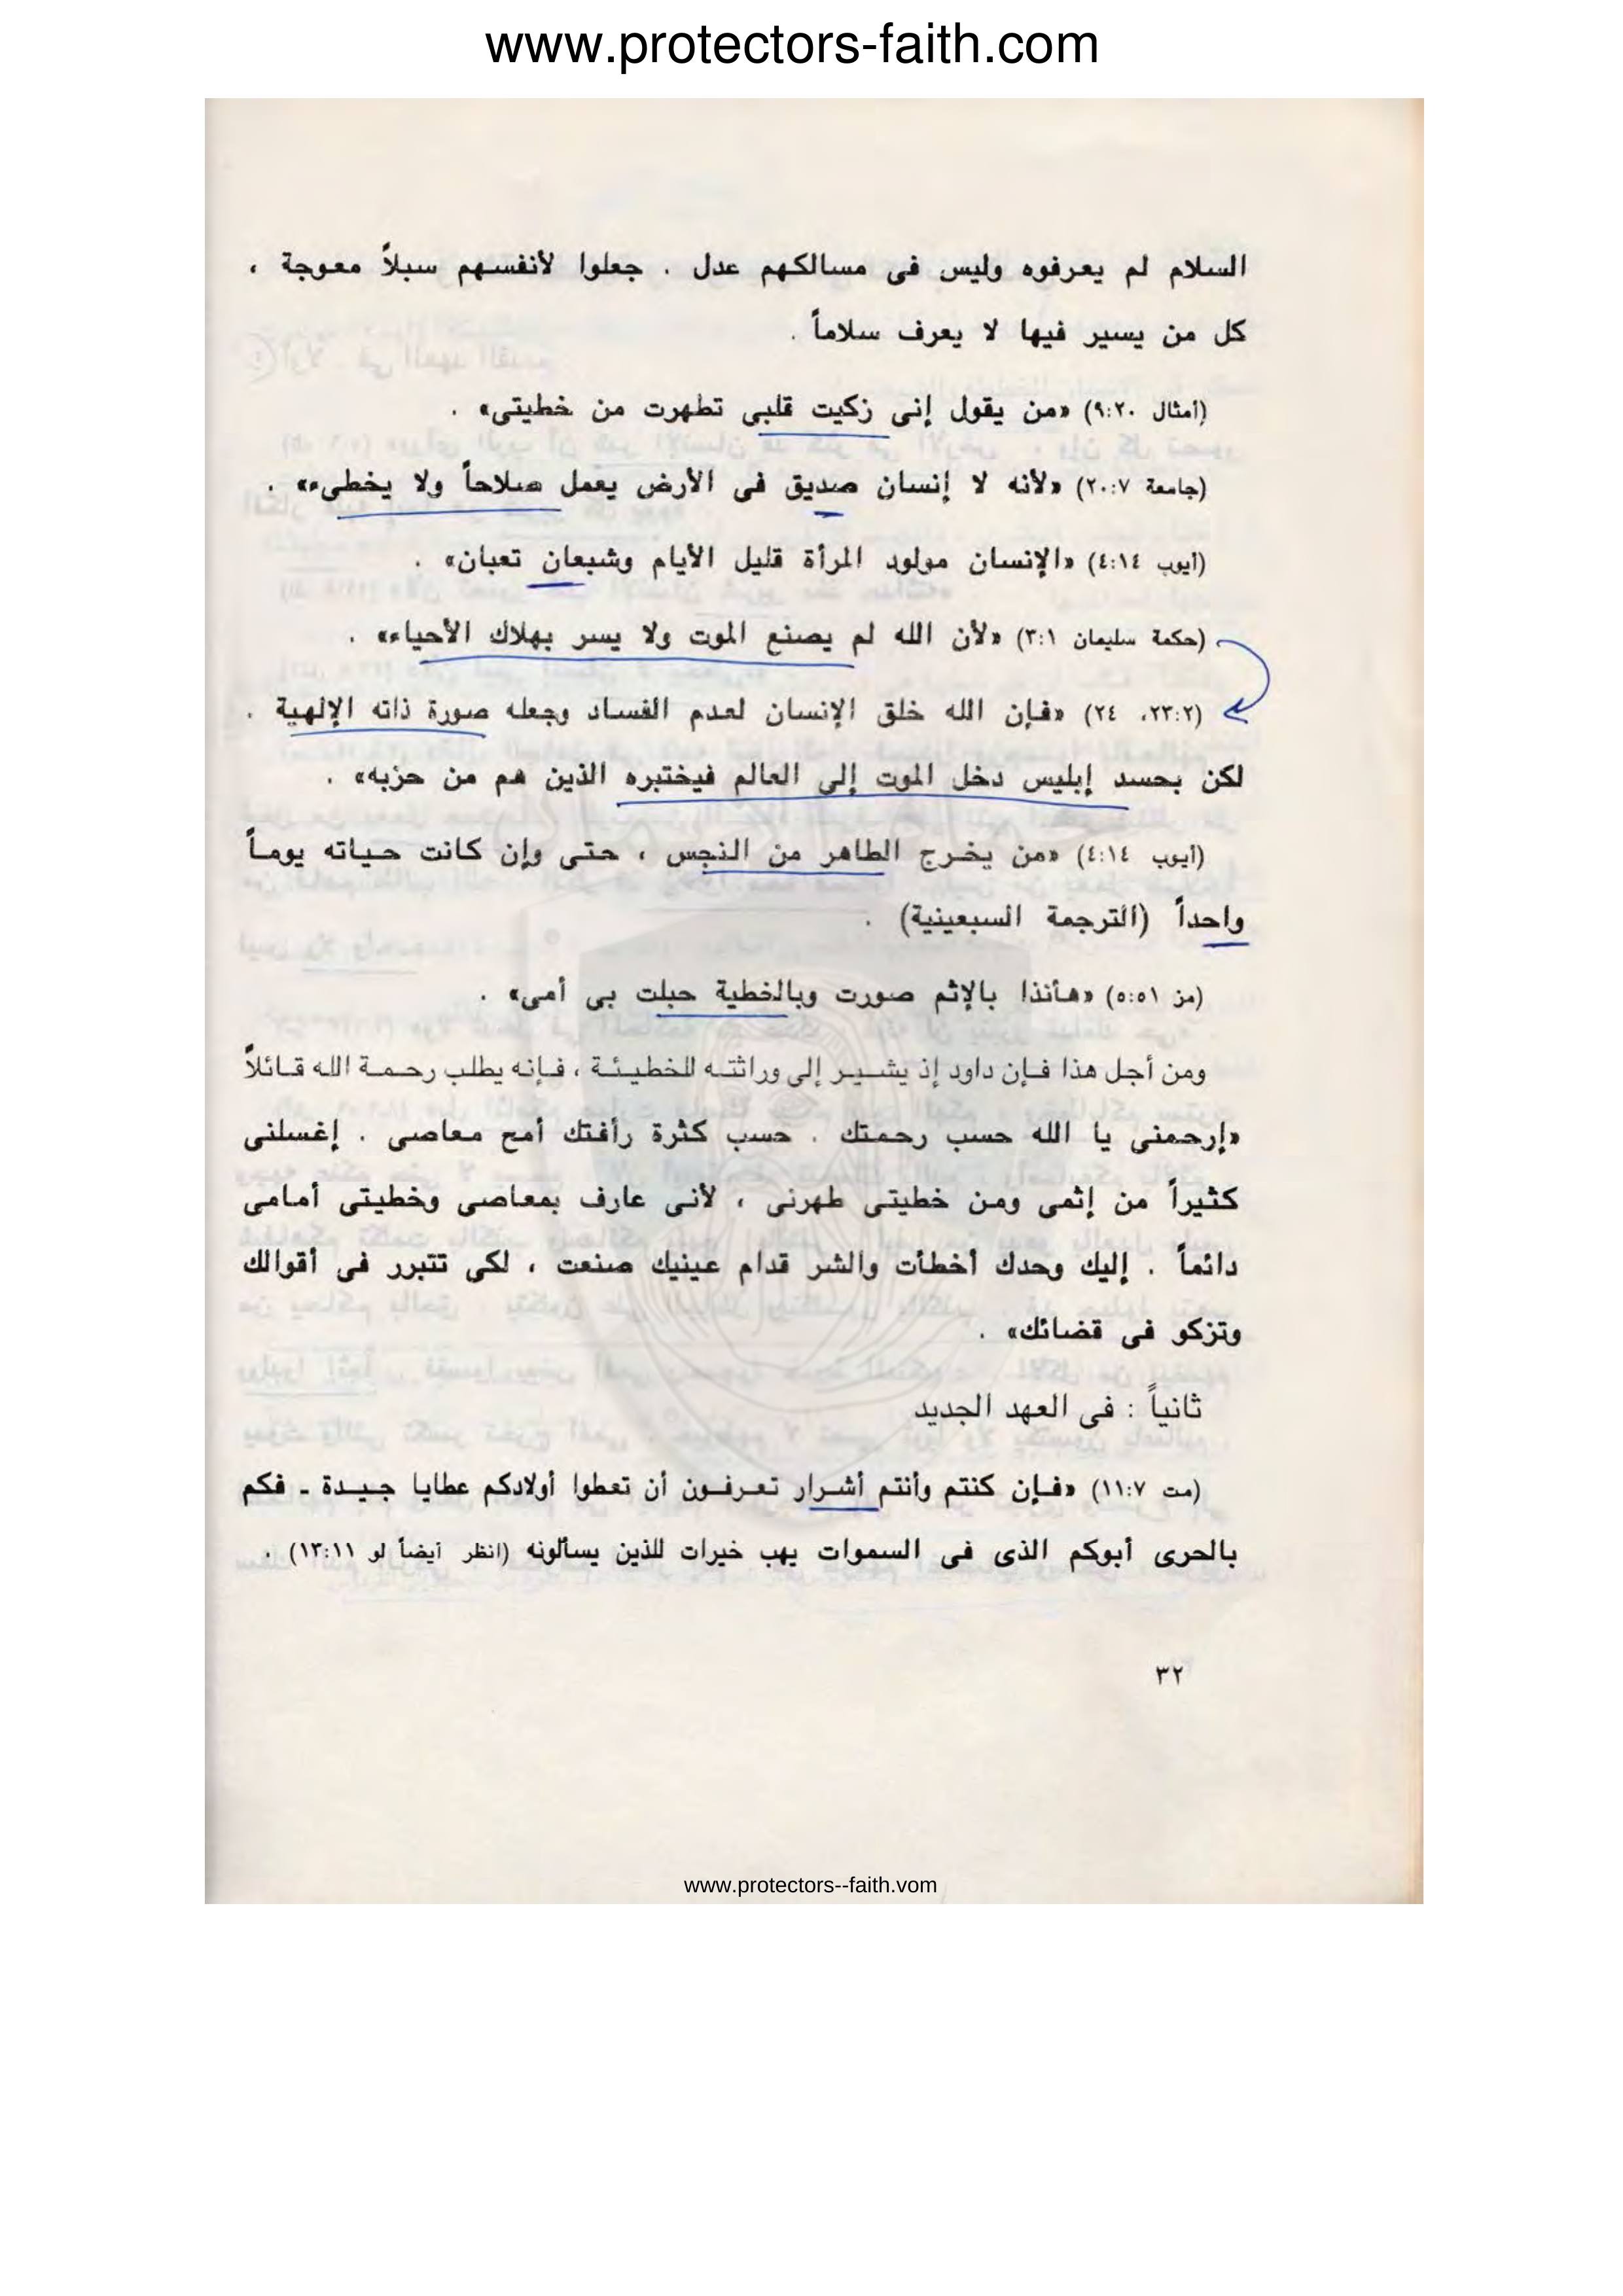 www.protectors-faith.com
السلام لم يعرفوه وليس فى مسالكهم عدل . جعلوا لأنفسهم سبلاً معوجة ،
كل من يسير فيها لا يعرف سلاماً .
(أمثال ٩:٢٠) «من يقول إنى زكيت قلبى تطهرت من خطيتى» .
(جامعة ٢٠:٧) «لأنه لا إنسان صديق فى الأرض يعمل صلاحاً ولا يخطىء» .
(أيوب ٤:١٤) «الإنسان مولود المرأة قليل الأيام وشبعان تعبان» .
(حكمة سليمان ٣:١) «لأن الله لم يصنع الموت ولا يسر بهلاك الأحياء» .
(٢٣:٢، ٢٤) «فإن الله خلق الإنسان لعدم الفساد وجعله صورة ذاته الإلهية .
لكن بحسد إبليس دخل الموت إلى العالم فيختبره الذين هم من حزبه» .
(أيوب ٤:١٤) «من يخرج الطاهر من النجس ، حتى وإن كانت حياته يوماً
واحداً (الترجمة السبعينية) .
(مز ٥:٥١) «هأنذا بالإثم صورت وبالخطية حبلت بى أمى» .
ومن أجل هذا فإن داود إذ يشير إلى وراثته للخطيئة ، فإنه يطلب رحمة الله قائلاً
«إرحمنى يا الله حسب رحمتك . حسب كثرة رأفتك أمح معاصى . إغسلنى
كثيراً من إثمى ومن خطيتى طهرنى ، لأنى عارف بمعاصى وخطيتى أمامى
دائماً . إليك وحدك أخطأت والشر قدام عينيك صنعت ، لكى تتبرر فى أقوالك
وتزكو فى قضائك» .
ثانياً : فى العهد الجديد
(مت ١١:٧) «فإن كنتم وأنتم أشرار تعرفون أن تعطوا أولادكم عطايا جيدة ـ فكم
بالحرى أبوكم الذى فى السموات يهب خيرات للذين يسألونه (انظر أيضاً لو ١٣:١١) .
٣٢
www.protectors--faith.vom